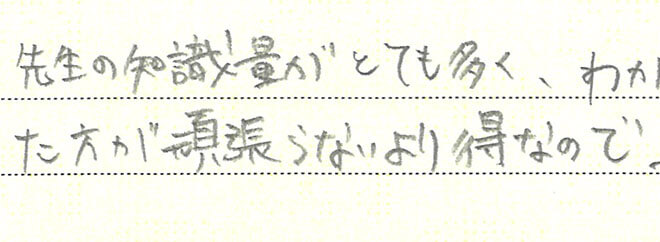 先生の知識量がとても多く、わか
た方が頑張らないより得なので